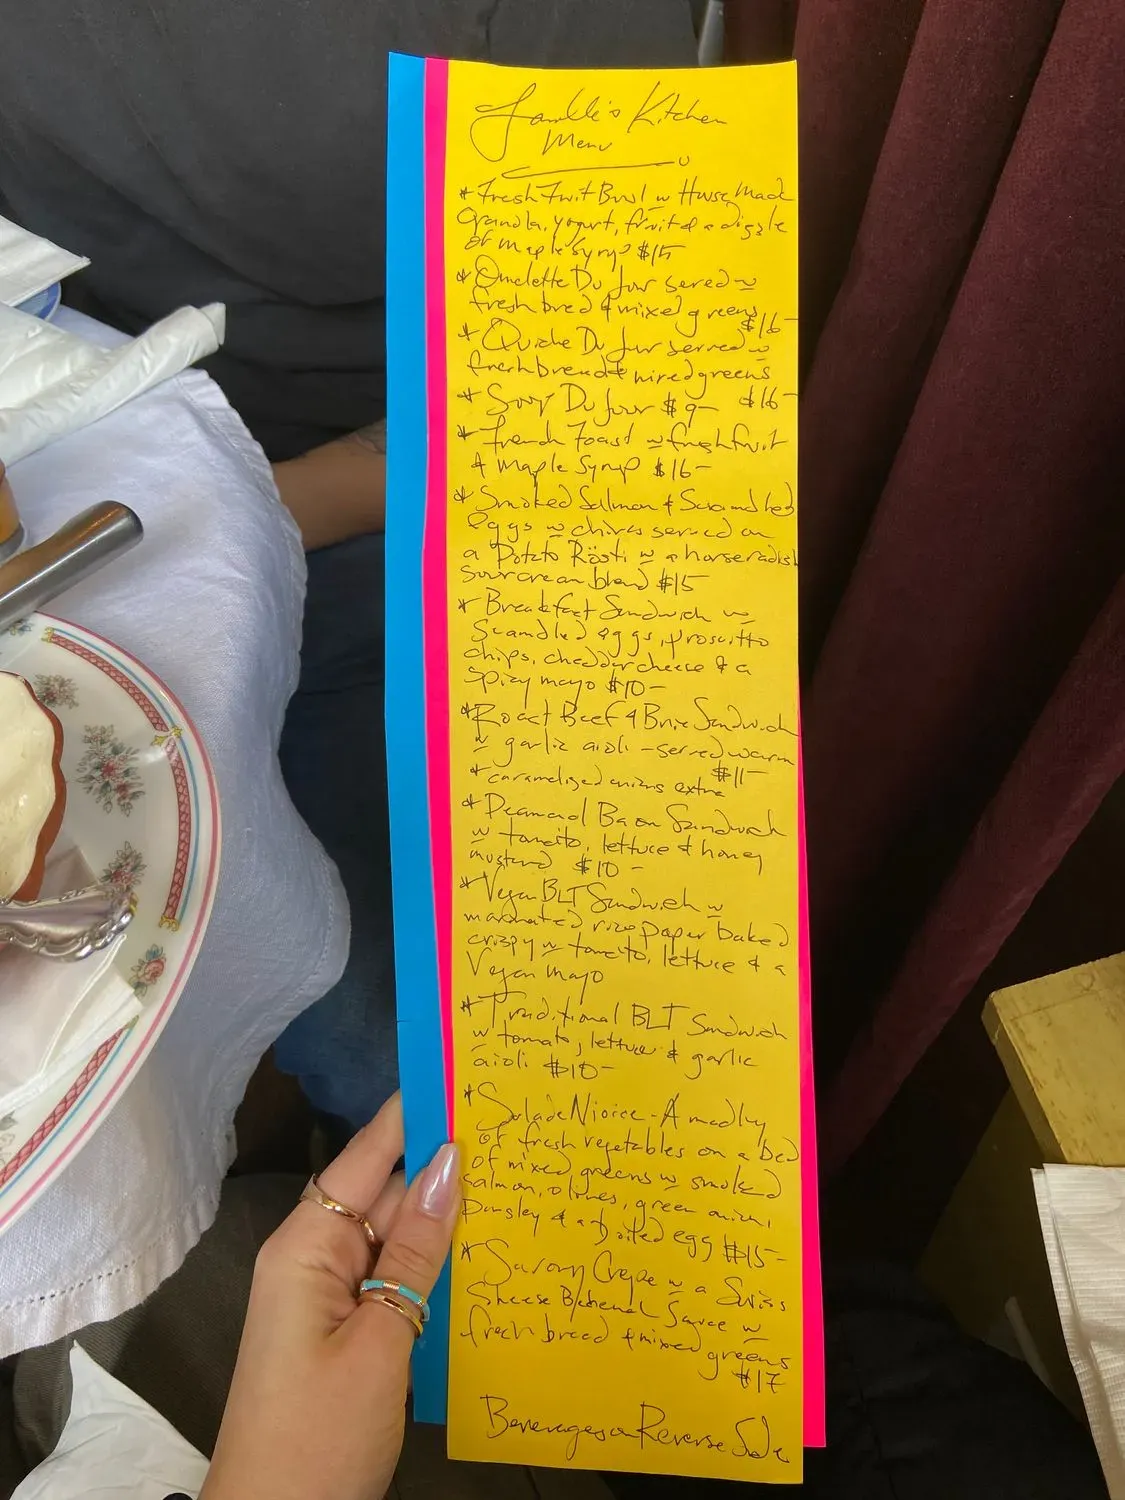 Kitchen
Menu
* Fresh Fruit Bowl w House Made
Granola, yogurt, fruit & a dizzle
of maple Syrup $15
* Omelette Du Jour sered w
fresh bred & mixed greens
$16-
* Quiche Du Jur served w
fresh bread & mixed greens
$16-
* Soup Du Jour $9-
* French Toast w fresh fruit
& Maple Syrup $16-
* Smoked Salmon & Scrambled
eggs w chives served on
a Potato Rösti w a horseradish
sour cream blend $15
* Breakfast Sandwich w
Scambled eggs, prosciutto
chips, cheddar cheese & a
Spicy mayo $10-
* Roast Beef & Brie Sandwich
w garlic aioli - served warm
$11-
* caramelized onions extra
* Peameal Bacon Sandwich
w tomato, lettuce & honey
mustard $10-
* Vegan BLT Sandwich w
marinated rice paper baked
crispy w tomato, lettuce & a
Vegan mayo
* Traditional BLT Sandwich
w tomato, lettuce & garlic
aioli $10-
* Salade Nicoice - A medley
of fresh vegetables on a bed
of mixed greens w smoked
salmon, olives, green onion,
parsley & a boiled egg $15-
* Savory Crepe w a Swiss
Sheese Sauce w
fresh bread & mixed greens
$17
Beverages on Reverse Side